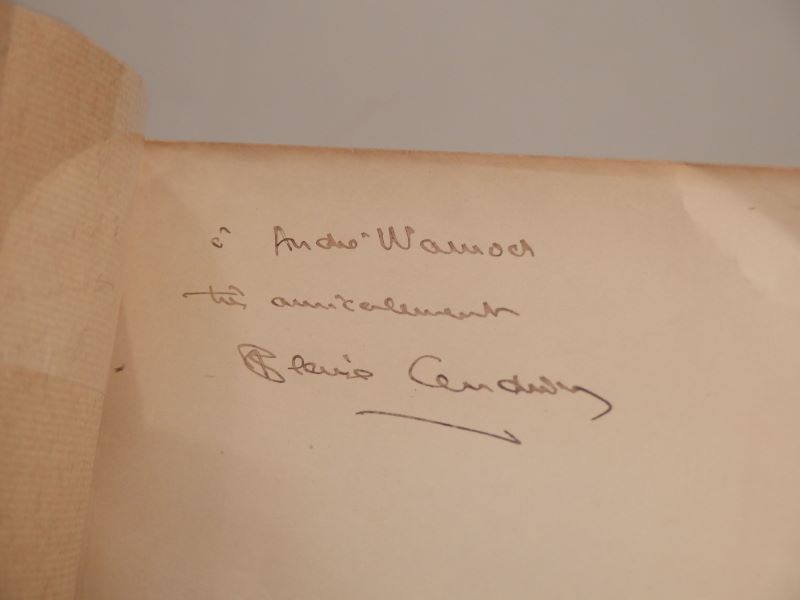 à André Warnod
très amicalement
Blaise Cendrars